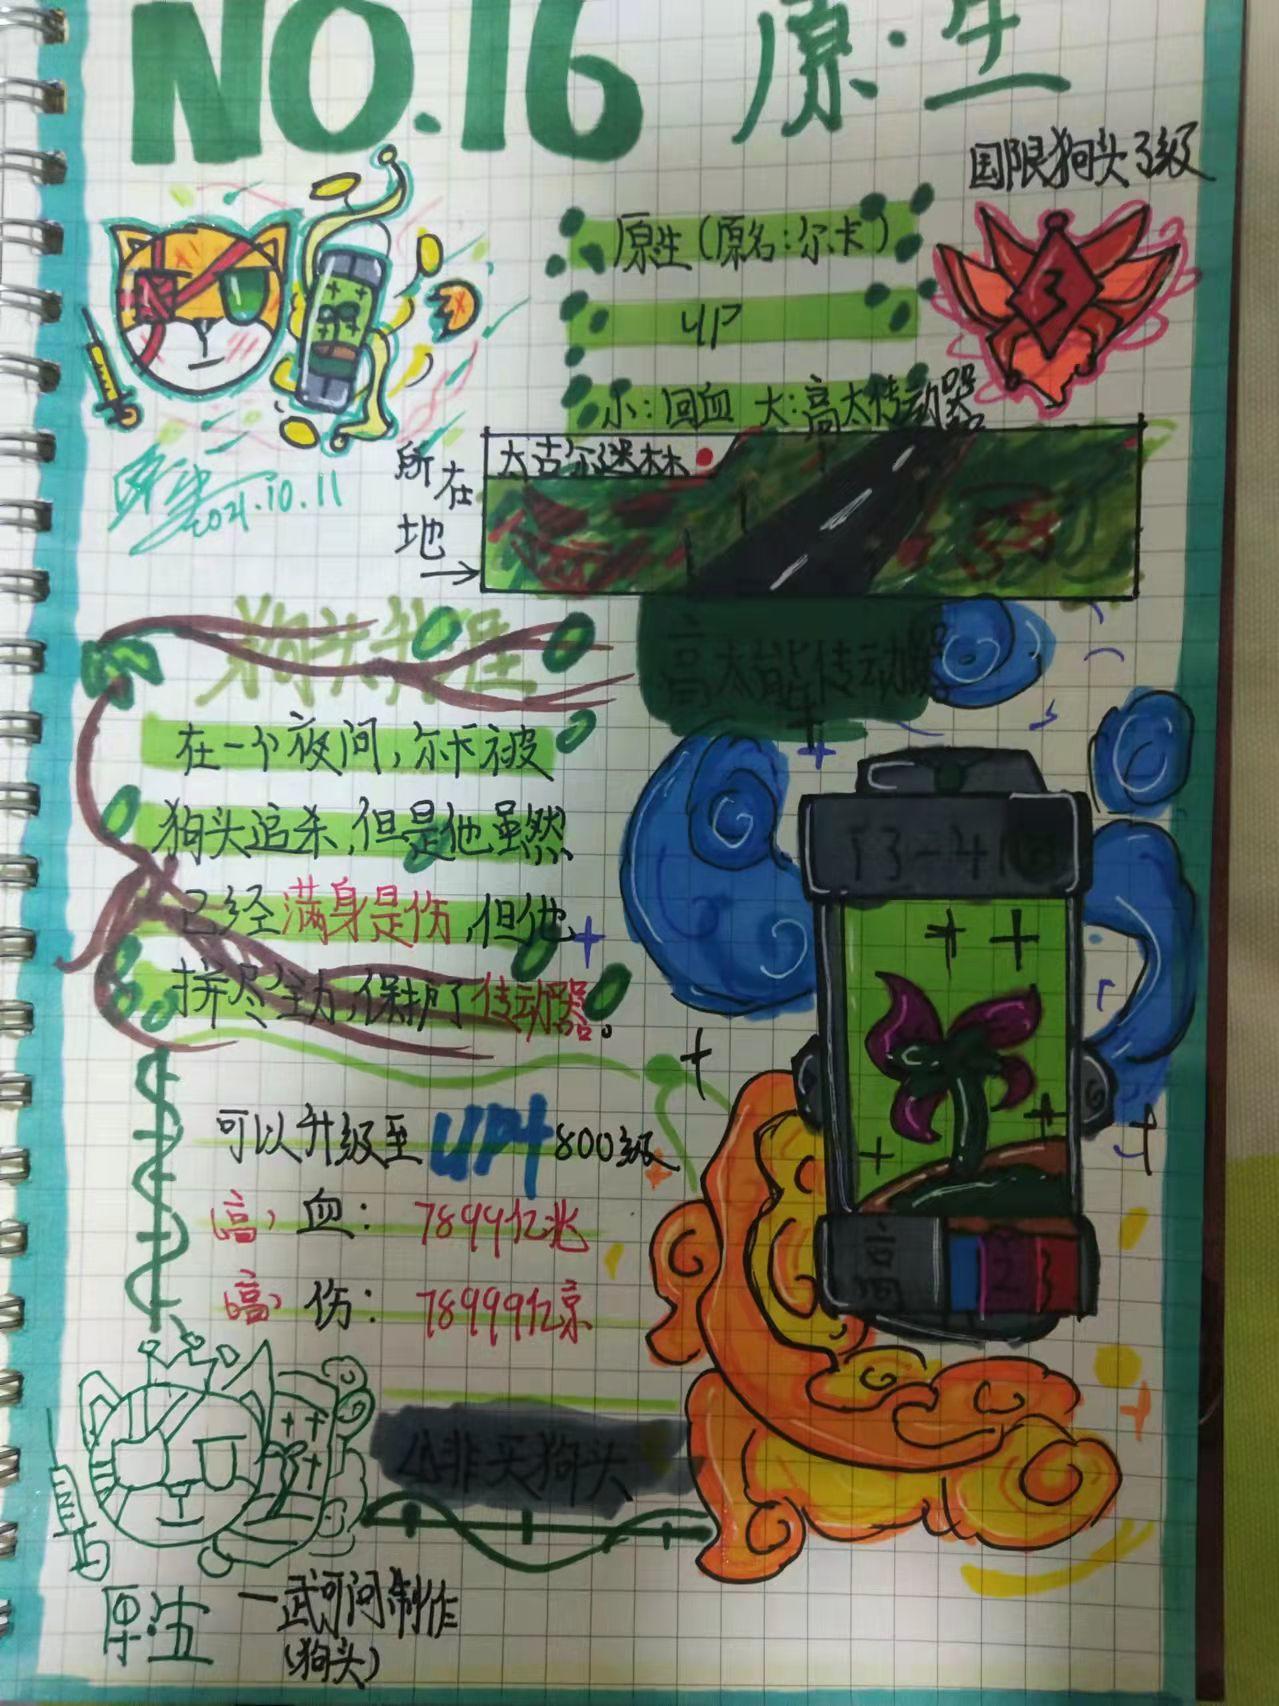 NO.16 原·生
国限狗头3级
3
原生(原名:尔卡)
UP
小:回血 大:高太传动器
所在地
太古尔迷林
2021.10.11
狗头生涯
高太能传动器
在一个夜间,尔卡被
狗头追杀,但是他虽然
已经满身是伤,但他
拼尽全力,保护了传动器。
可以升级至UP+800级
(高)血:7899亿兆
(高)伤:78999亿京
小非买狗头
原·生
一武可问制作
(狗头)